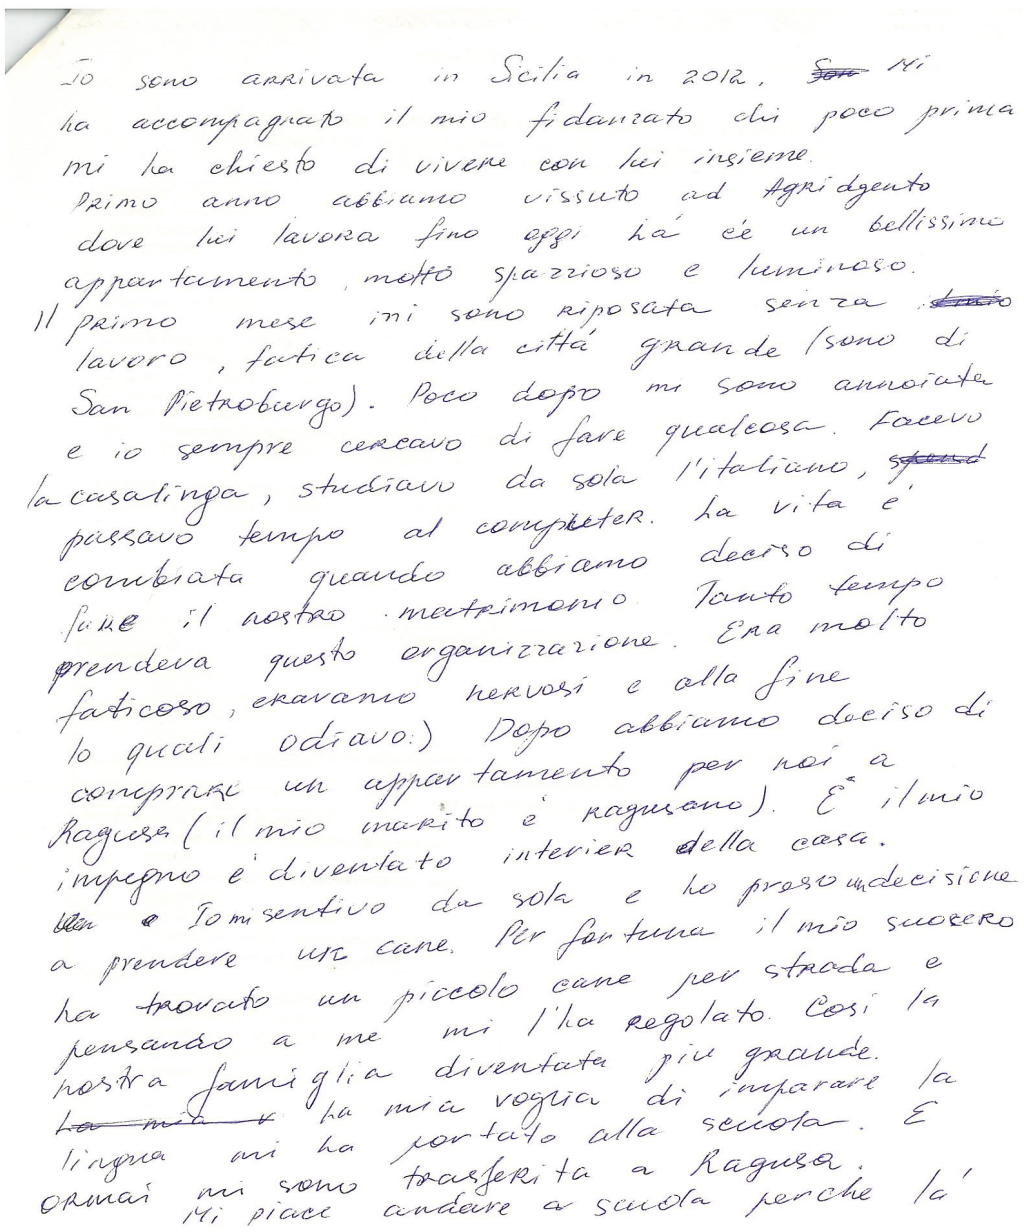 Io sono arrivata in Sicilia in 2012. Mi
ha accompagnato il mio fidanzato chi poco prima
mi ha chiesto di vivere con lui insieme.
Primo anno abbiamo vissuto ad Agridgento
dove lui lavora fino oggi. Lá c'é un bellissimo
appartamento, molto spazzioso e luminoso.
Il primo mese mi sono riposata senza
lavoro, fatica della cittá grande (sono di
San Pietroburgo). Poco dopo mi sono annoiata
e io sempre cercavo di fare qualcosa. Facevo
la casalinga, studiavo da sola l'italiano,
passavo tempo al computer. La vita é
cambiata quando abbiamo deciso di
fare il nostro matrimonio. Tanto tempo
prendeva questo organizzazione. Era molto
faticoso, eravamo nervosi e alla fine
lo quali odiavo:) Dopo abbiamo deciso di
comprare un appartamento per noi a
Ragusa (il mio marito é ragusano). E il mio
impegno é diventato interier della casa.
Io mi sentivo da sola e ho preso un decisione
a prendere un cane. Per fortuna il mio suocero
ha trovato un piccolo cane per strada e
pensando a me mi l'ha regolato. Cosi la
nostra famiglia diventata piu grande.
La mia voglia di imparare la
lingua mi ha portato alla scuola. E
ormai mi sono trasferita a Ragusa.
Mi piace andare a scuola perche lá